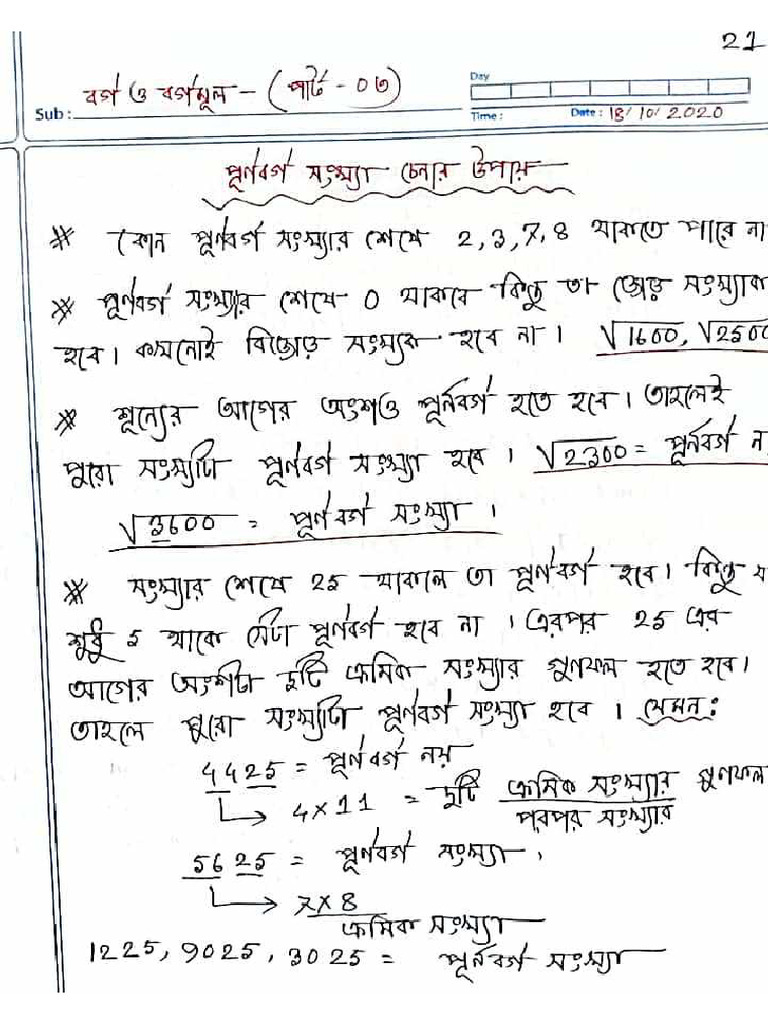 21
বর্গ ও বর্গমূল - (পার্ট - ০৩)
Day
Sub:
Time:
Date: 18/10/2020
পূর্ণবর্গ সংখ্যা চেনার উপায়
* কোন পূর্ণবর্গ সংখ্যার শেষে 2,3,7,8 থাকতে পারে না
* পূর্ণবর্গ সংখ্যার শেষে 0 থাকবে কিন্তু তা জোড় সংখ্যক
হবে। কখনোই বিজোড় সংখ্যক হবে না। √1600, √2500
* শূন্যের আগের অংশও পূর্নবর্গ হতে হবে। তাহলেই
পুরো সংখ্যাটা পূর্ণবর্গ সংখ্যা হবে। √2300 = পূর্নবর্গ ন
√3600 = পূর্ণবর্গ সংখ্যা।
* সংখ্যার শেষে 25 থাকলে তা পূর্ণবর্গ হবে। কিন্তু
শুধু 5 থাকে সেটা পূর্ণবর্গ হবে না। এরপর 25 এর
আগের অংশটা দুটি ক্রমিক সংখ্যার গুণফল হতে হবে।
তাহলে পুরো সংখ্যাটা পূর্ণবর্গ সংখ্যা হবে। যেমন:
4425 = পূর্ণবর্গ নয়
→ 4×11 = দুটি ক্রমিক সংখ্যার গুণফল
পরপর সংখ্যার
5625 = পূর্ণবর্গ সংখ্যা।
→ 7×8
ক্রমিক সংখ্যা
1225, 9025, 3025 = পূর্নবর্গ সংখ্যা